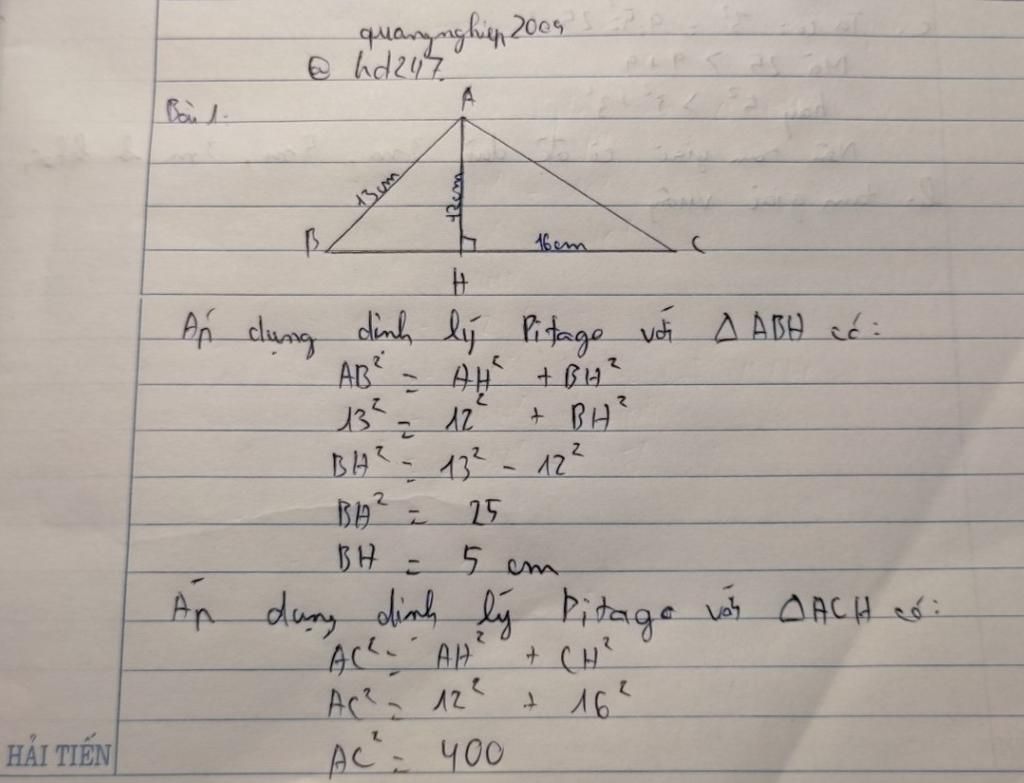 quangnghiep2009
@ hd247
Bài 1.
A
13cm
12cm
B
16cm
C
H
Áp dụng định lý Pitago với △ABH có:
AB² = AH² + BH²
13² = 12² + BH²
BH² = 13² - 12²
BH² = 25
BH = 5 cm
Áp dụng định lý Pitago với △ACH có:
AC² = AH² + CH²
AC² = 12² + 16²
AC² = 400
HẢI TIẾN